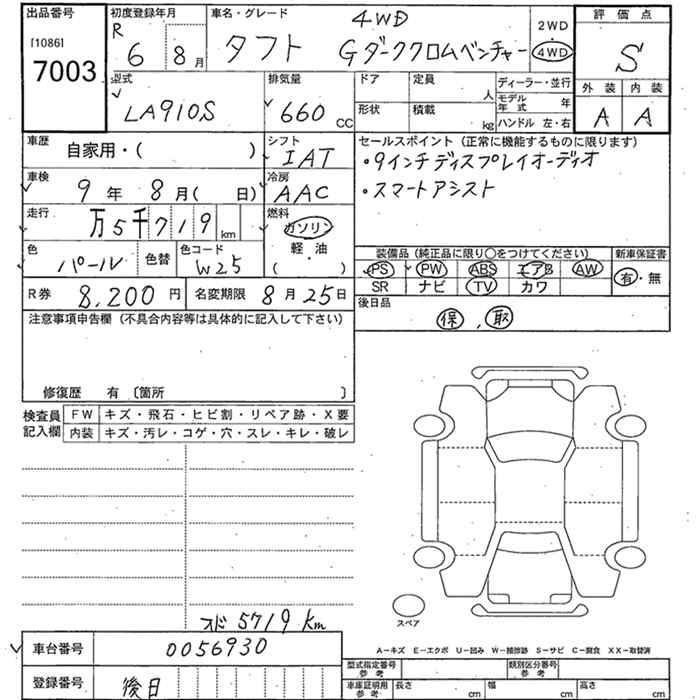 出品番号
[1086]
7003
初度登録年月
R 6 8月
車名・グレード
4WD
タフト Gダーククロムベンチャー
2WD
・
4WD
評価点
S
外装 内装
A A
型式
LA910S
排気量
660 CC
ドア
定員 人
形状
積載 kg
ディーラー・並行
モデル年式 年
ハンドル 左・右
車歴
自家用・( )
シフト
IAT
セールスポイント (正常に機能するものに限ります)
・9インチディスプレイオーディオ
・スマートアシスト
車検
9年 8月( 日)
冷房
AAC
走行
万5千719 km
燃料
ガソリン
軽・油
( )
色
パール
色替
色コード
W25
装備品 (純正品に限り○をつけてください)
新車保証書
PS PW ABS エアB AW
SR ナビ TV カワ
有・無
R券 8,200円
名変期限 8月25日
後日品
保 , 取
注意事項申告欄 (不具合内容等は具体的に記入して下さい)
修復歴 有 〔箇所 〕
検査員記入欄
FW キズ・飛石・ヒビ割・リペア跡・X要
内装 キズ・汚レ・コゲ・穴・スレ・キレ・破レ
スペア
スド 5719 km
車台番号 0056930
登録番号 後日
A−キズ E−エクボ U−凹み W−補修跡 S−サビ C−腐食 XX−取替済
型式指定番号 参考
類別区分番号 参考
車庫証明用 参考
長さ cm
幅 cm
高さ cm